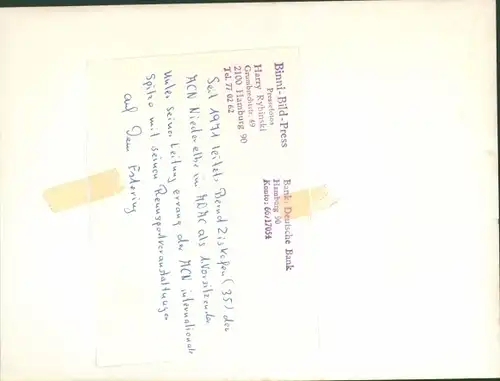 Binni-Bild-Press
Pressefotos
Harry Rybinski
Grumbrechtstr. 69
2100 Hamburg 90
Tel. 77 02 62
Bank: Deutsche Bank
Hamburg 90
Konto: 66/17054
Seit 1971 leitet Bernd Ziskofen (35) den
MCN Niederelbe im ADAC als 1. Vorsitzender
Unter seiner Leitung errang der MCN international
Spitze mit seinen Rennsportveranstaltungen
auf dem Estering